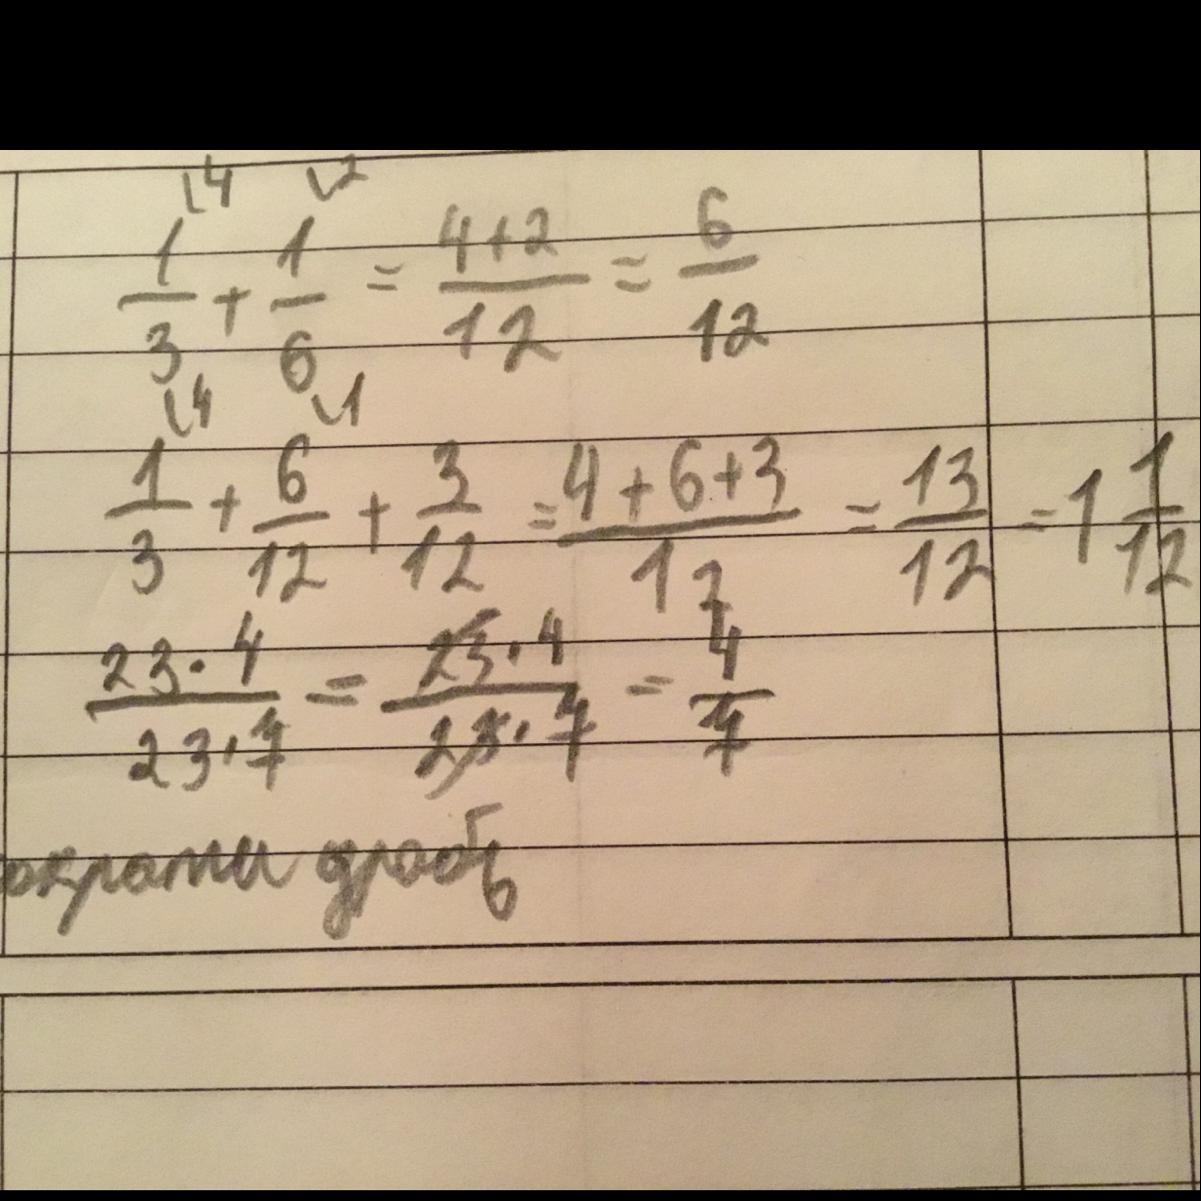 ⌊4 ⌊2
1/3 + 1/6 = 4+2/12 = 6/12
⌊4 ⌊1
1/3 + 6/12 + 3/12 = 4+6+3/12 = 13/12 = 1 1/12
23·4/23·7 = 23·4/23·7 = 4/7
ократи дробь